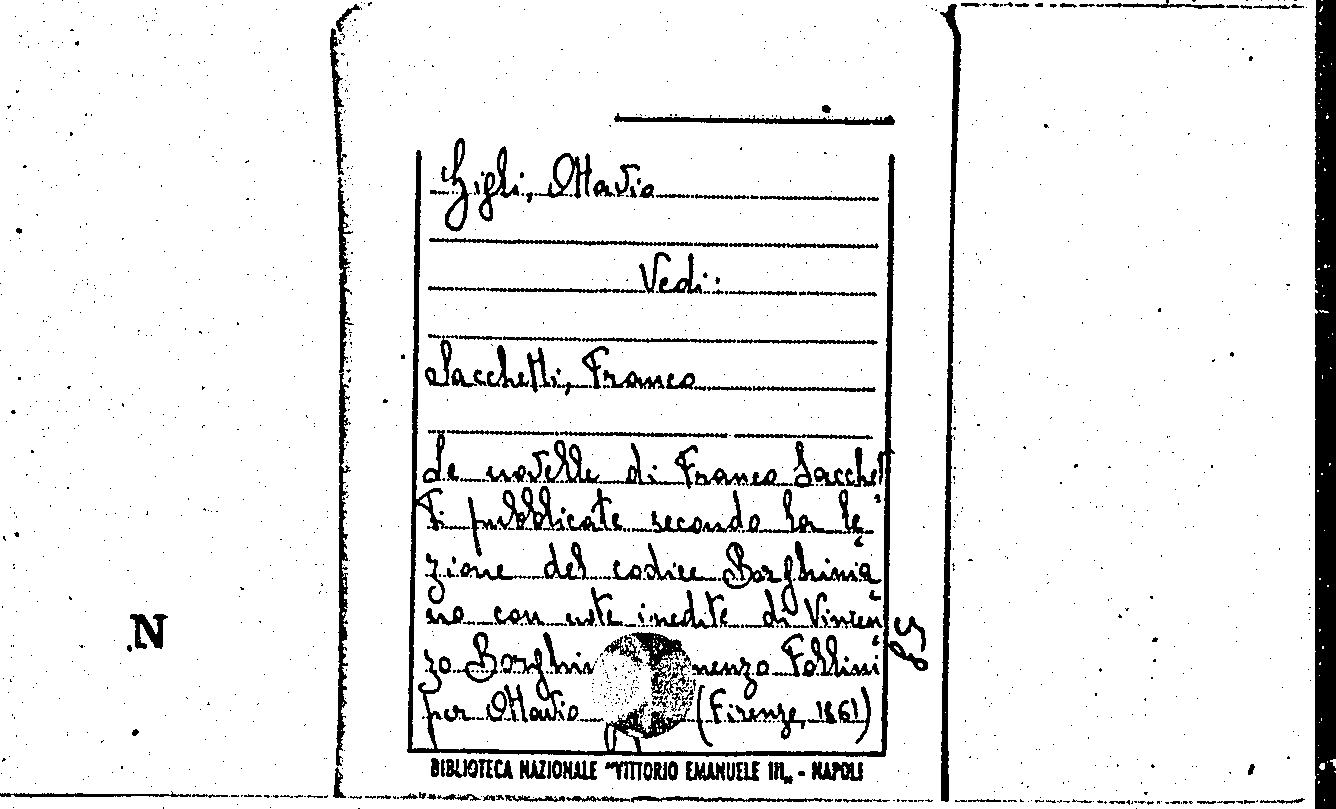 Gigli, Ottavio
Vedi:
Sacchetti, Franco
Le novelle di Franco Sacchet
ti pubblicate secondo la le
zione del codice Borghinia
no con note inedite di Vincen
zo Borghin nenzo Follini
per Ottavio (Firenze, 1861)
N
BIBLIOTECA NAZIONALE "VITTORIO EMANUELE III„ - NAPOLI